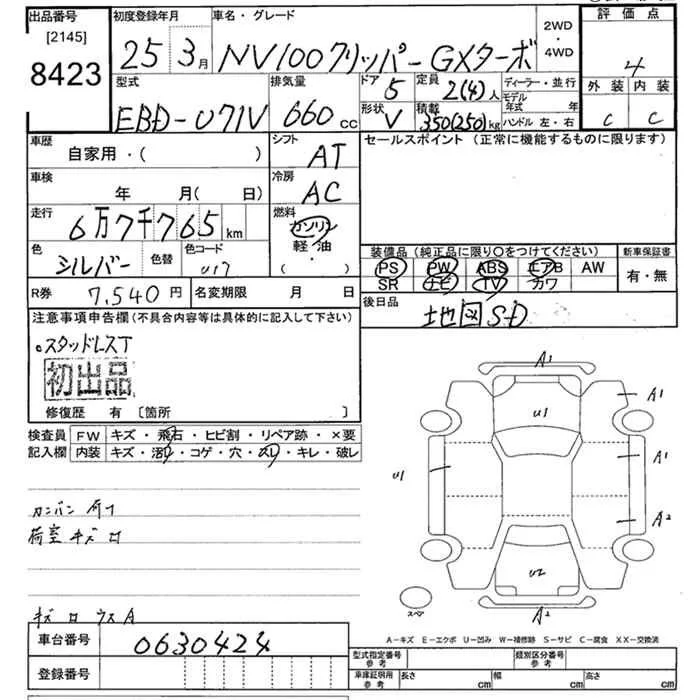 出品番号
[2145]
8423
初度登録年月
25年3月
車名・グレード
NV100クリッパーGXターボ
2WD
・
4WD
評価点
4
外装 内装
C C
型式
EBD-U71V
排気量
660 cc
ドア 5
定員 2(4)人
ディーラー・並行
形状 V
積載 350(250)kg
モデル年式 年
ハンドル 左・右
車歴
自家用・( )
シフト
AT
セールスポイント (正常に機能するものに限ります)
車検
年 月( 日)
冷房
AC
走行
6万7千765 km
燃料
ガソリン
軽・油
・
( )
色
シルバー
色替
色コード
U17
装備品(純正品に限り〇をつけてください)
新車保証書
PS PW ABS エアB AW
有・無
SR ナビ TV カワ
R券 7,540円
名変期限 月 日
後日品
地図 S-D
注意事項申告欄(不具合内容等は具体的に記入して下さい)
。スタッドレスT
初出品
修復歴 有 [箇所 ]
検査員
記入欄
FW キズ・飛石・ヒビ割・リペア跡・×要
内装 キズ・汚・コゲ・穴・スレ・キレ・破レ
カンバン 有
荷室 キズ ロ
キズ ロ ウス A
A1
U1
A1
A1
U1
A2
U2
A2
スペア
A-キズ E-エクボ U-凹み W-補修跡 S-サビ C-腐食 XX-交換済
車台番号 0630424
登録番号
型式指定番号
参考
類別区分番号
参考
車庫証明用
参考
長さ cm 幅 cm 高さ cm